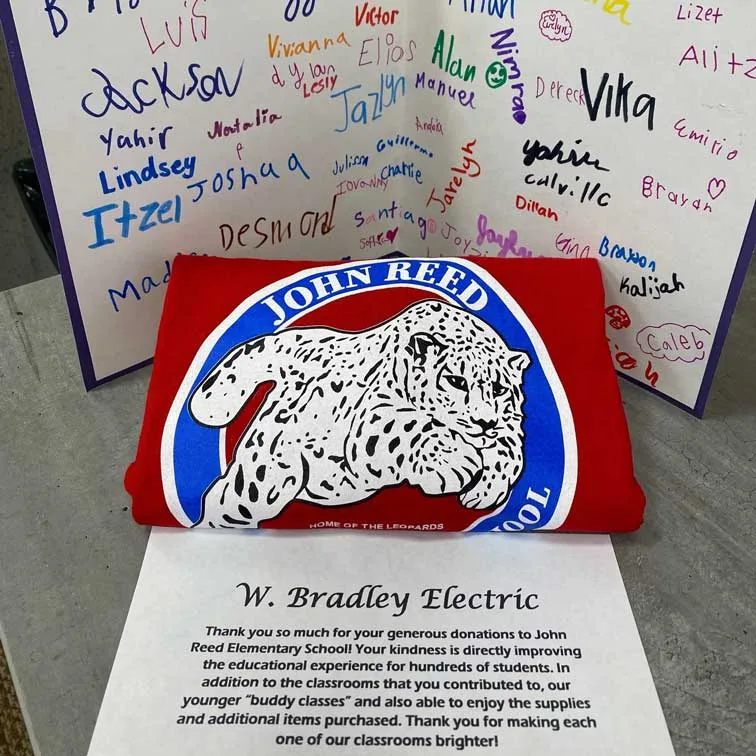 Luis
Victor
Vivianna
Elias
Dylan
Lesly
Alan
Nimra
Lizet
Jackson
Jazlyn
Manuel
Dereck
Vika
Yahir
Natalia
Emilio
Lindsey
Joshua
Julissa
Guillermo
Charlie
Jarelyn
Brayan
Itzel
Giovanny
Dillan
Desmond
Santiago
Sofia
Gina
Braxon
Kalijah
Caleb
JOHN REED
OOL
HOME OF THE LEOPARDS
W. Bradley Electric
Thank you so much for your generous donations to John
Reed Elementary School! Your kindness is directly improving
the educational experience for hundreds of students. In
addition to the classrooms that you contributed to, our
younger "buddy classes" and also able to enjoy the supplies
and additional items purchased. Thank you for making each
one of our classrooms brighter!